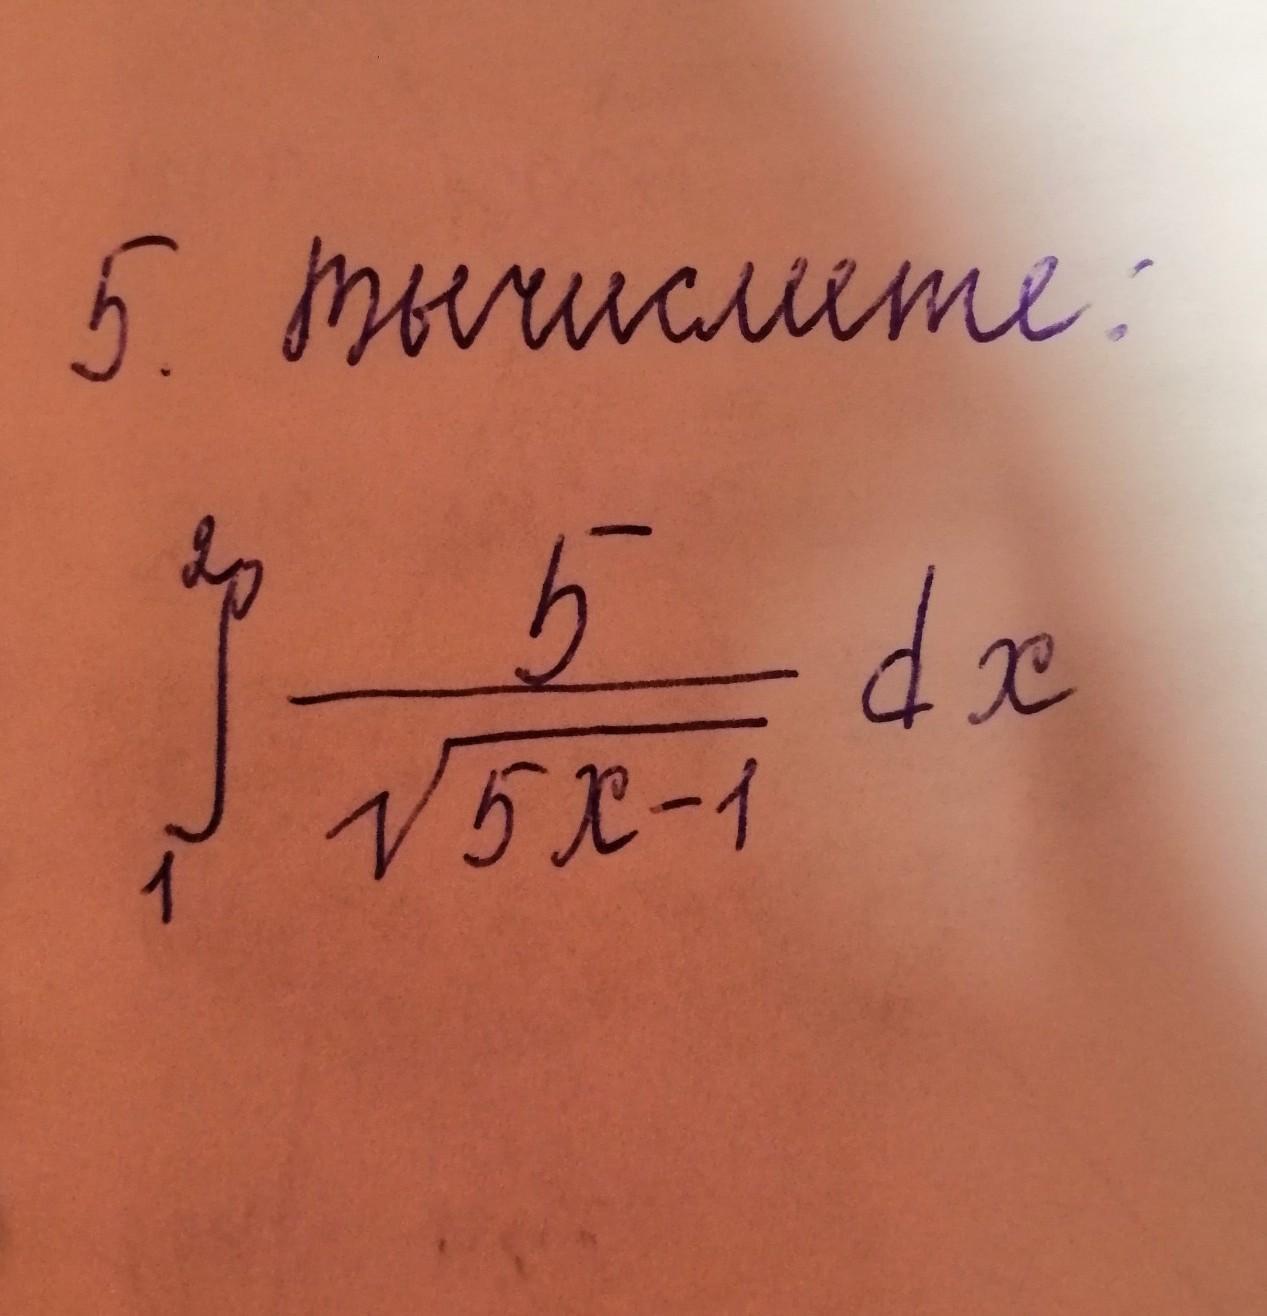 5. Вычислите:
2
∫ 5 / √(5x-1) dx
1